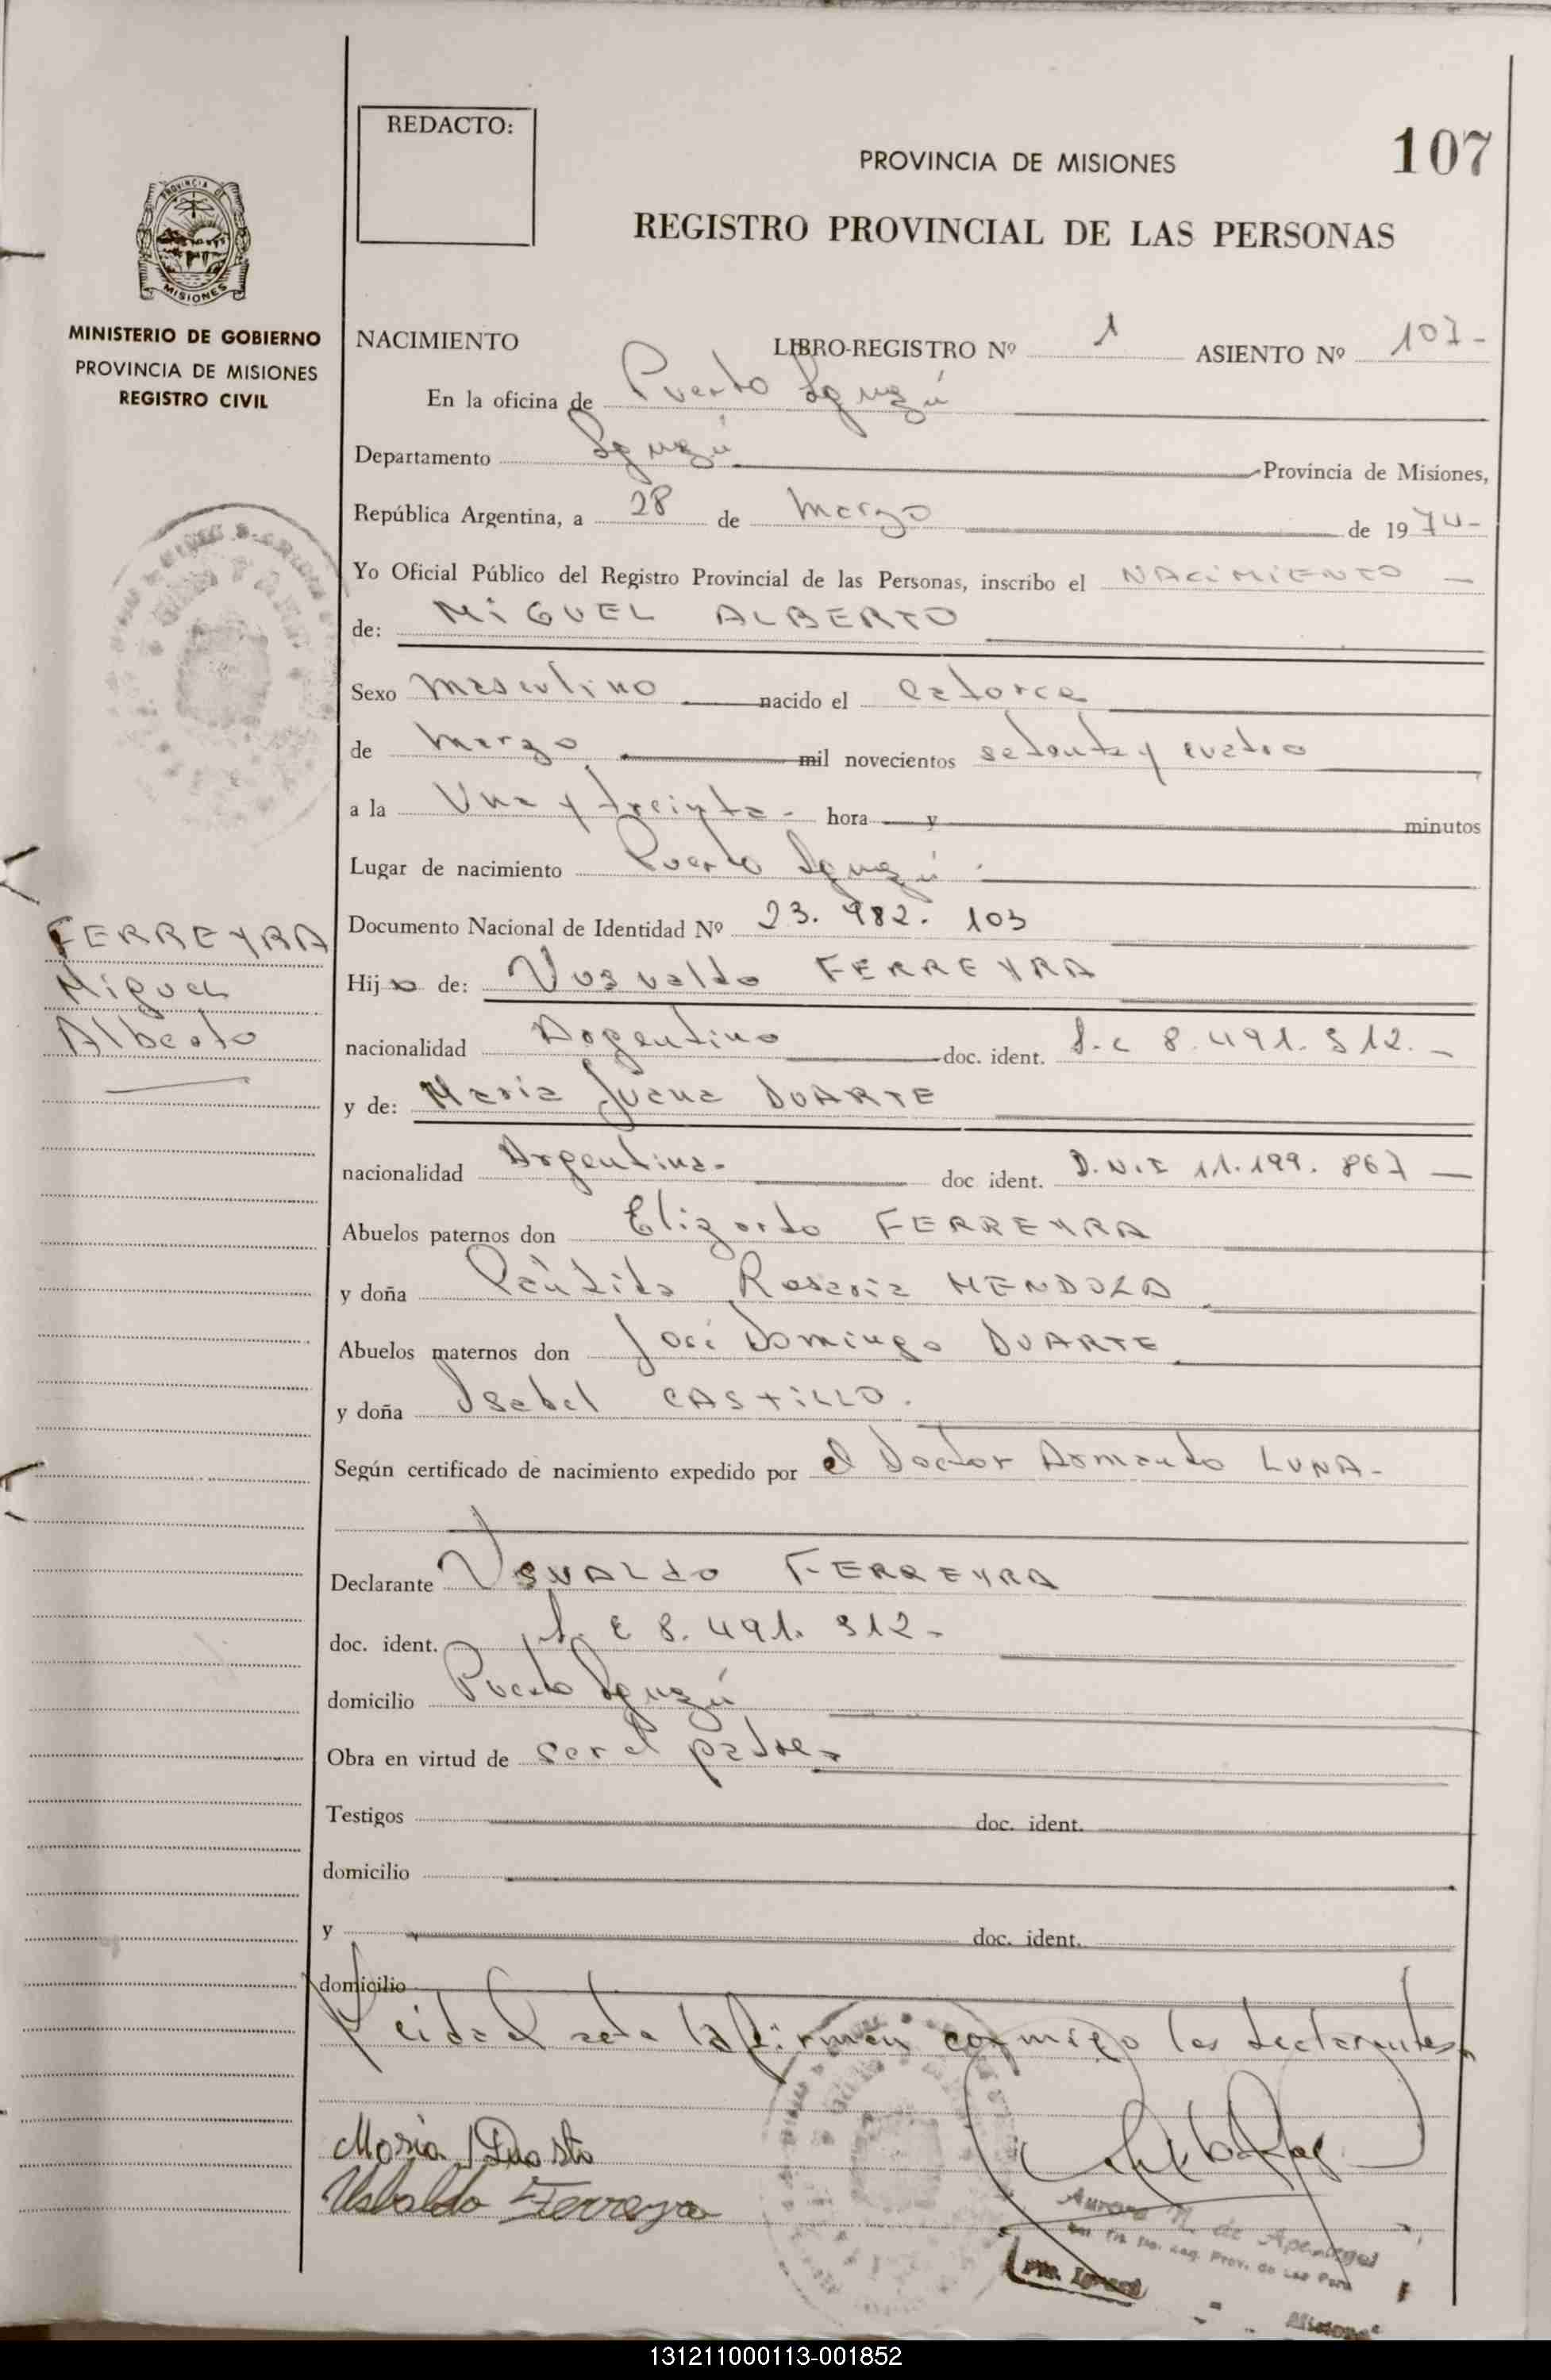 REDACTO:
107
PROVINCIA DE MISIONES
REGISTRO PROVINCIAL DE LAS PERSONAS
PROVINCIA DE
MISIONES
MINISTERIO DE GOBIERNO
PROVINCIA DE MISIONES
REGISTRO CIVIL
NACIMIENTO LIBRO-REGISTRO Nº 1 ASIENTO Nº 107-
En la oficina de Puerto Iguazú
Departamento Iguazú Provincia de Misiones,
República Argentina, a 28 de Marzo de 1974-
Yo Oficial Público del Registro Provincial de las Personas, inscribo el NACIMIENTO —
de: MIGUEL ALBERTO
Sexo Masculino nacido el catorce
de Marzo mil novecientos setenta y cuatro
a la Una y treinta- hora y minutos
Lugar de nacimiento Puerto Iguazú.
Documento Nacional de Identidad Nº 23.982.103
FERREYRA
Miguel
Alberto
Hijo de: Usvaldo FERREYRA
nacionalidad Argentino doc. ident. L.E 8.491.312.-
y de: María Juana DUARTE
nacionalidad Argentina- doc ident. D.N.I 11.199.867 —
Abuelos paternos don Elizardo FERREYRA
y doña Cándida Rosaria MENDOZA
Abuelos maternos don José Domingo DUARTE
y doña Isabel CASTILLO.
Según certificado de nacimiento expedido por el Doctor Armando LUNA-
Declarante USVALDO FERREYRA
doc. ident. L.E 8.491.312-
domicilio Puerto Iguazú
Obra en virtud de ser el padre-
Testigos doc. ident.
domicilio
y doc. ident.
domicilio
Leida el acta la firman conmigo los declarantes
Maria J Duarte
Usbaldo Ferreyra
Aurora N. de
Reg. Prov. de las Pers
Pto. Iguazú
Misiones
131211000113-001852